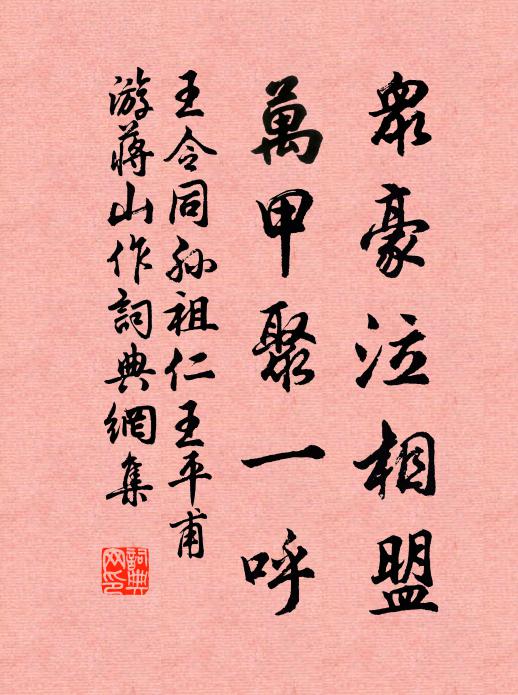 眾豪泣相盟
萬甲聚一呼
王令同孙祖仁王平甫
游蔣山作詞典網集
詞典網印